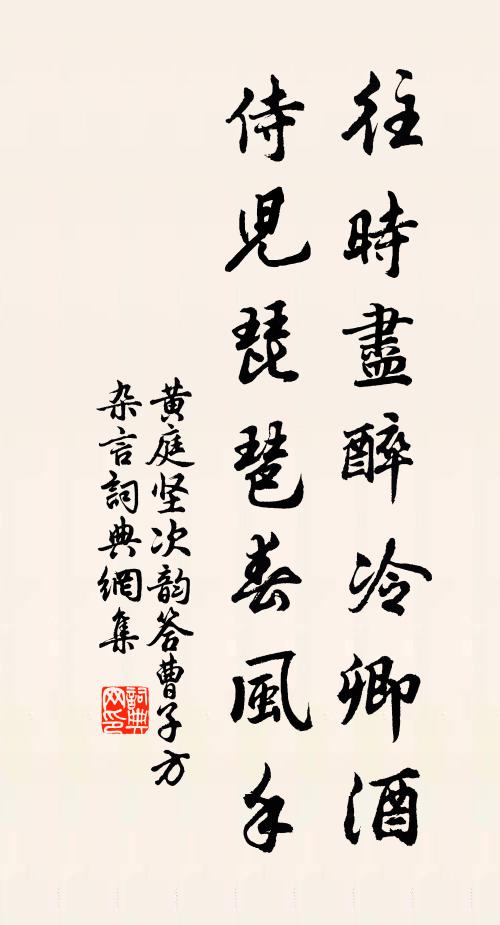 往時盡醉冷卿酒
侍兒琵琶春風手
黄庭坚次韵答曹子方
杂言詞典網集
詞典网印